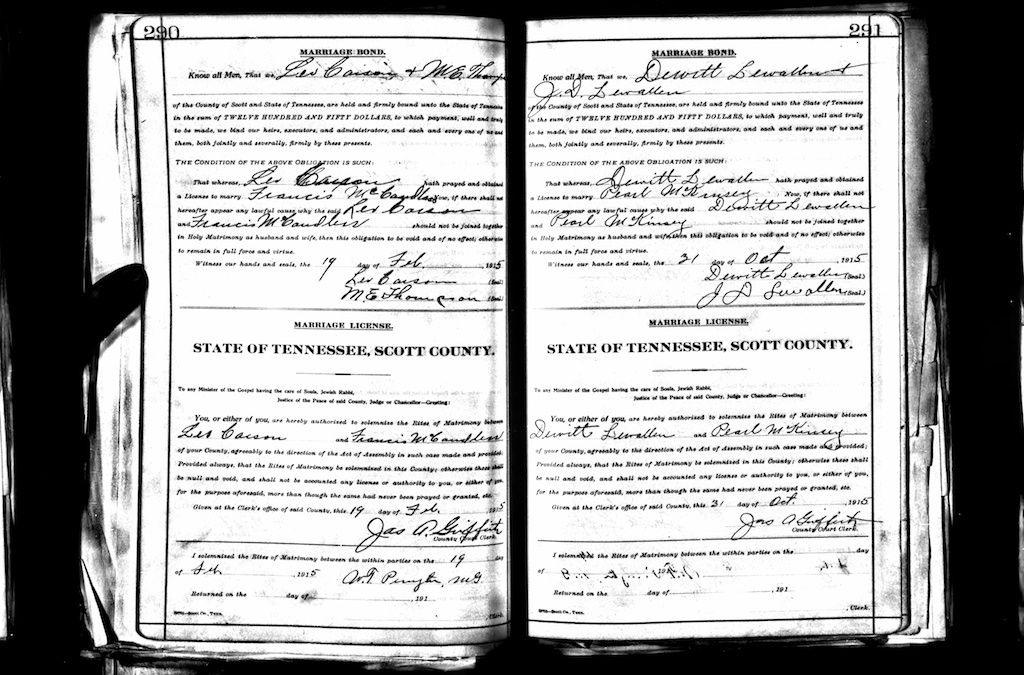 290
MARRIAGE BOND.
Know all Men, That we, Leo Caison & M.E. Thomp
of the County of Scott and State of Tennessee, are held and firmly bound unto the State of Tennessee
in the sum of TWELVE HUNDRED AND FIFTY DOLLARS, to which payment, well and truly
to be made, we bind our heirs, executors, and administrators, and each and every one of us and
them, both jointly and severally, firmly by these presents.
THE CONDITION OF THE ABOVE OBLIGATION IS SUCH:
That whereas, Leo Caison hath prayed and obtained
a License to marry Francis McCandless Now, if there shall not
hereafter appear any lawful cause why the said Leo Caison
and Francis McCandless should not be joined together
in Holy Matrimony as husband and wife, then this obligation to be void and of no effect; otherwise
to remain in full force and virtue.
Witness our hands and seals, the 19 day of Feb. 1915
Leo Caison (Seal)
M E Thompson (Seal)
MARRIAGE LICENSE.
STATE OF TENNESSEE, SCOTT COUNTY.
To any Minister of the Gospel having the care of Souls, Jewish Rabbi,
Justice of the Peace of said County, Judge or Chancellor—Greeting:
You, or either of you, are hereby authorized to solemnize the Rites of Matrimony between
Leo Caison and Francis McCandless
of your County, agreeably to the direction of the Act of Assembly in such case made and provided;
Provided always, that the Rites of Matrimony be solemnized in this County; otherwise these shall
be null and void, and shall not be accounted any license or authority to you, or either of you
for the purpose aforesaid, more than though the same had never been prayed or granted, etc.
Given at the Clerk's office of said County, this 19 day of Feb. 1915
Jas A. Griffith
County Court Clerk.
I solemnized the Rites of Matrimony between the within parties on the 19 day
of Feb , 1915 W.T.
Returned on the day of , 191
291
MARRIAGE BOND.
Know all Men, That we, Dewitt Lewallen &
J. D. Lewallen
of the County of Scott and State of Tennessee, are held and firmly bound unto the State of Tennessee
in the sum of TWELVE HUNDRED AND FIFTY DOLLARS, to which payment, well and truly
to be made, we bind our heirs, executors, and administrators, and each and every one of us and
them, both jointly and severally, firmly by these presents.
THE CONDITION OF THE ABOVE OBLIGATION IS SUCH:
That whereas, Dewitt Lewallen hath prayed and obtained
a License to marry Pearl McKinsey Now, if there shall not
hereafter appear any lawful cause why the said Dewitt Lewallen
and Pearl McKinsey should not be joined together
in Holy Matrimony as husband and wife, then this obligation to be void and of no effect; otherwise
to remain in full force and virtue.
Witness our hands and seals, the 31 day of Oct , 1915
Dewitt Lewallen (Seal)
J D Lewallen (Seal)
MARRIAGE LICENSE.
STATE OF TENNESSEE, SCOTT COUNTY.
To any Minister of the Gospel having the care of Souls, Jewish Rabbi,
Justice of the Peace of said County, Judge or Chancellor—Greeting:
You, or either of you, are hereby authorized to solemnize the Rites of Matrimony between
Dewitt Lewallen and Pearl McKinsey
of your County, agreeably to the direction of the Act of Assembly in such case made and provided;
Provided always, that the Rites of Matrimony be solemnized in this County; otherwise these shall
be null and void, and shall not be accounted any license or authority to you, or either of you,
for the purpose aforesaid, more than though the same had never been prayed or granted, etc.
Given at the Clerk's office of said County, this 31 day of Oct. , 1915
Jas A Griffith
County Court Clerk.
I solemnized the Rites of Matrimony between the within parties on the day
of
Returned on the day of , 191
, Clerk.